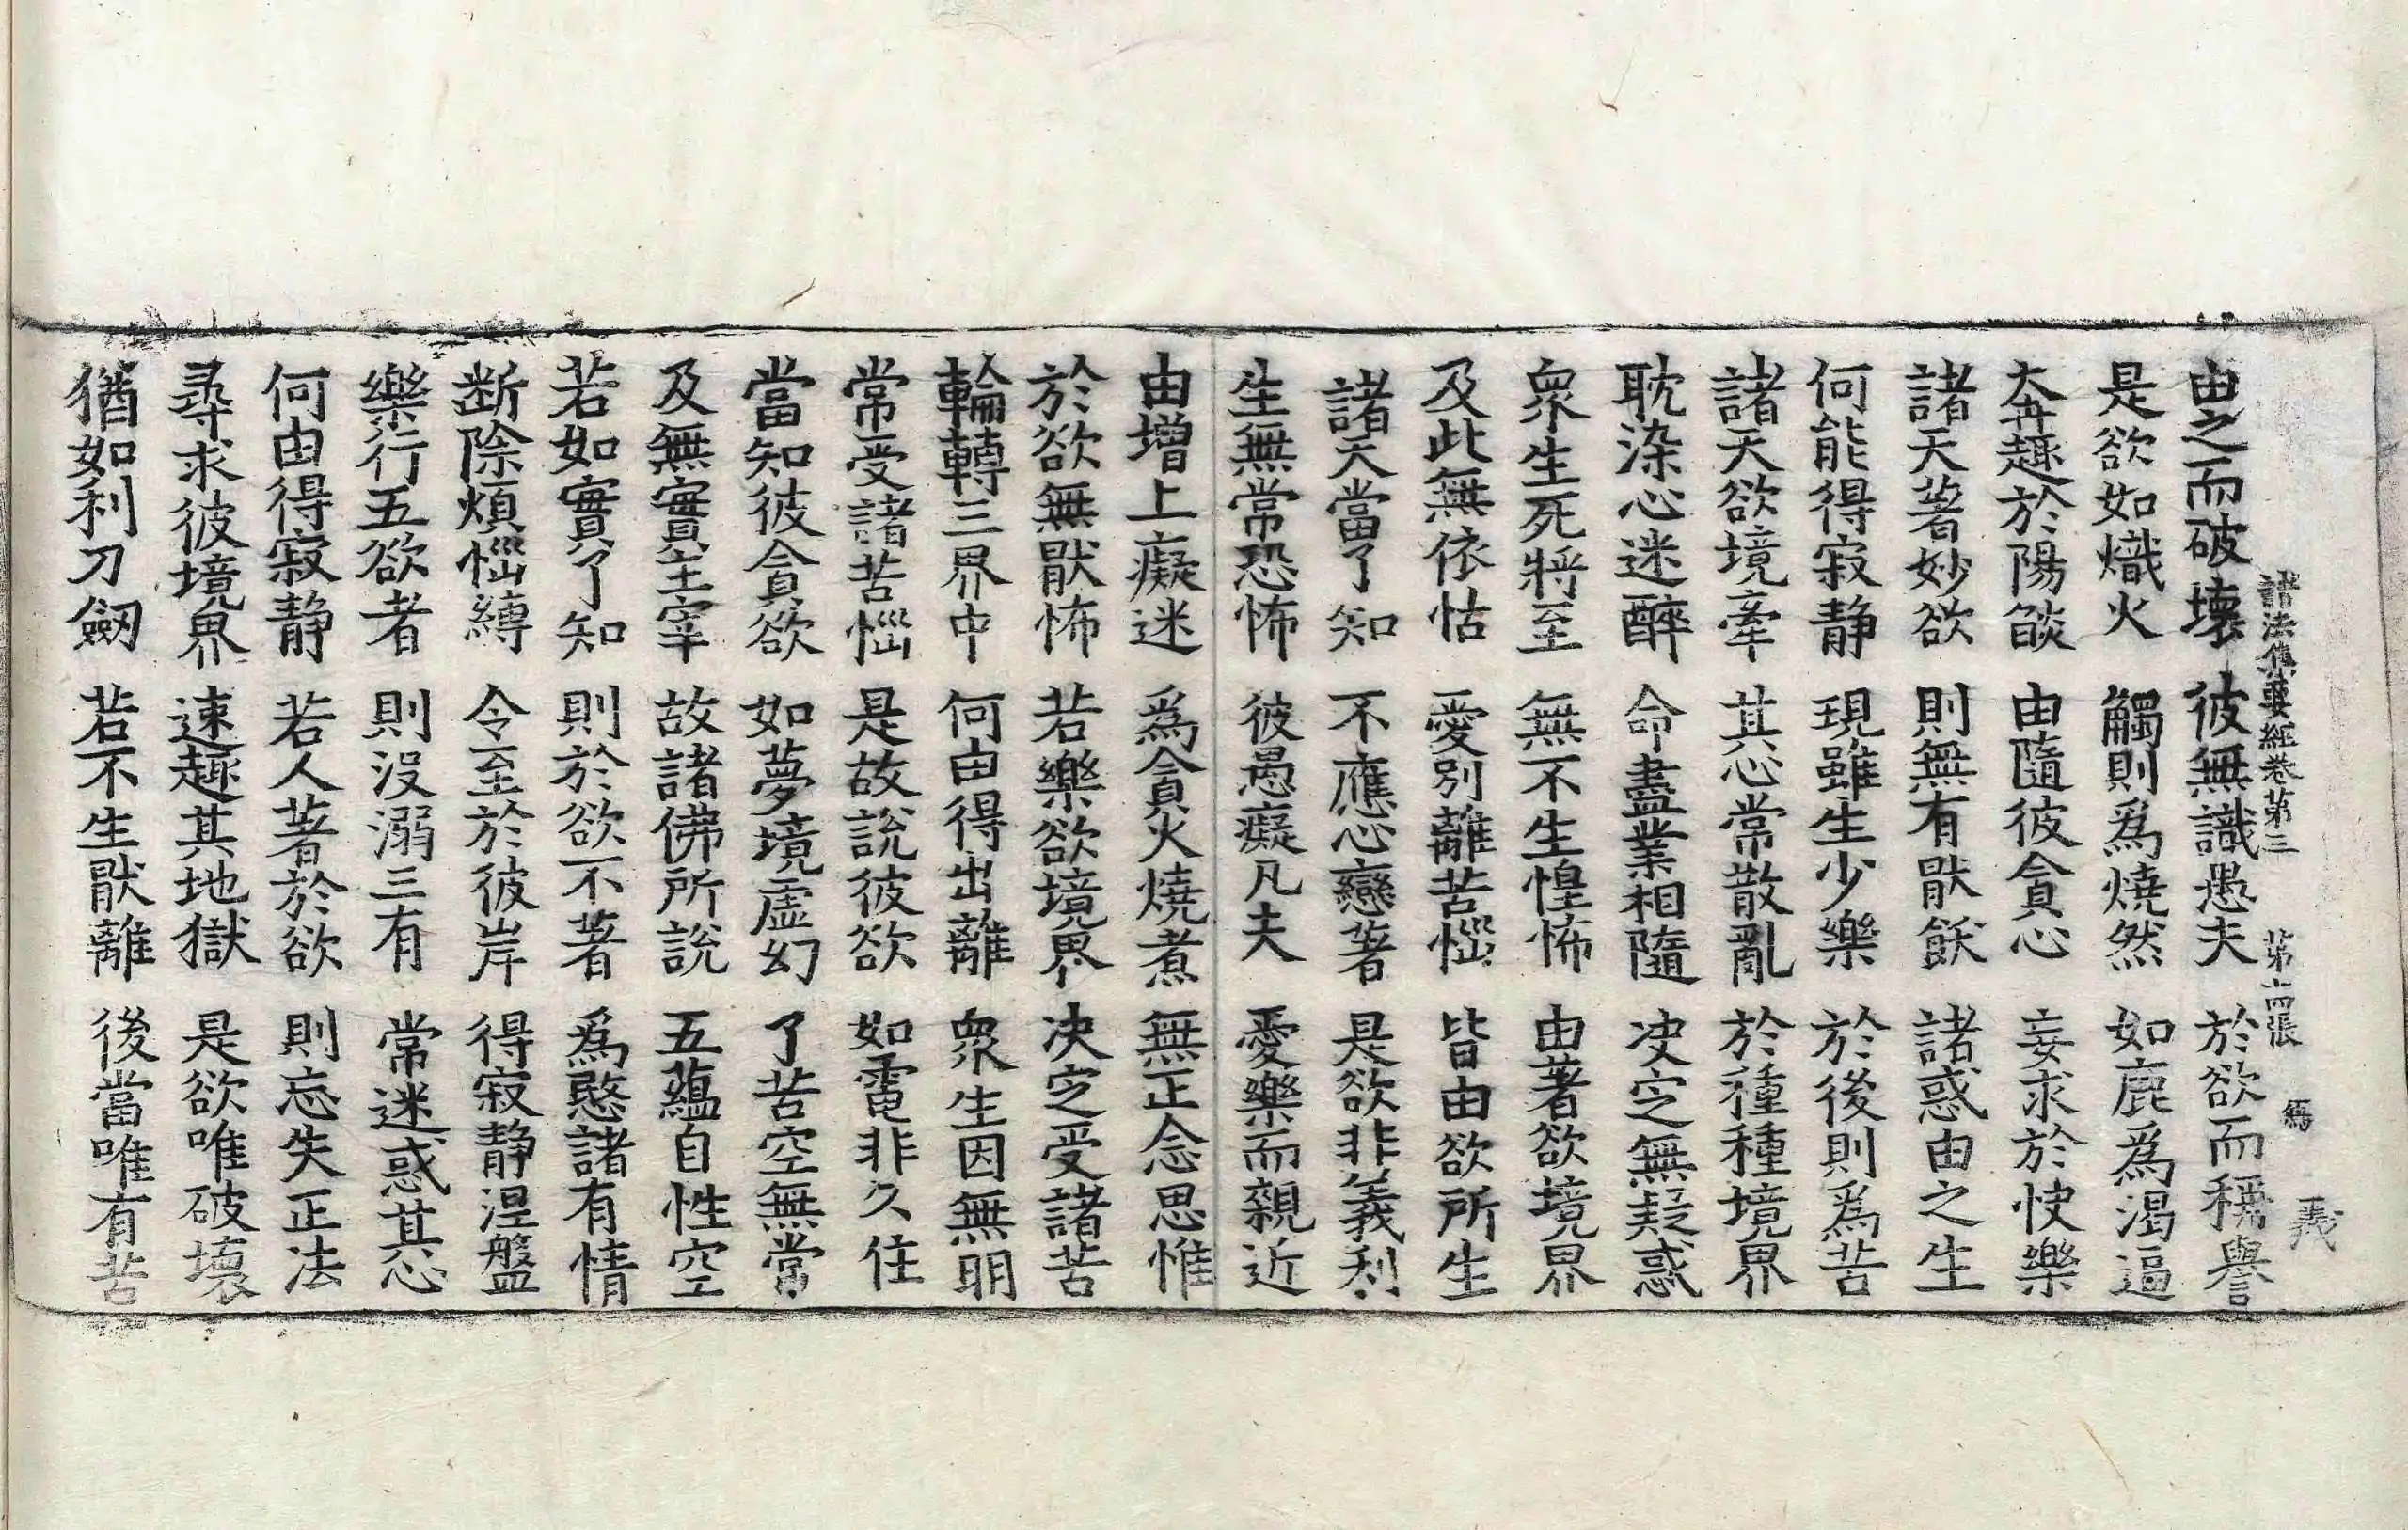 諸法集要經卷第三　第十四張　㒚　義
由之而破壞　彼無識愚夫　於欲而稱譽
是欲如熾火　觸則爲燒然　如鹿爲渴逼
奔趣於陽燄　由隨彼貪心　妄求於快樂
諸天著妙欲　則無有厭飫　諸惑由之生
何能得寂静　現雖生少樂　於後則爲苦
諸天欲境牽　其心常散亂　於種種境界
耽染心迷醉　命盡業相隨　決定無疑惑
衆生死將至　無不生惶怖　由著欲境界
及此無依怙　愛別離苦惱　皆由欲所生
諸天當了知　不應心戀著　是欲非義利
生無常恐怖　彼愚癡凡夫　愛樂而親近
由增上癡迷　爲貪火燒煮　無正念思惟
於欲無厭怖　若樂欲境界　决定受諸苦
輪轉三界中　何由得出離　衆生因無明
常受諸苦惱　是故說彼欲　如電非久住
當知彼貪欲　如夢境虛幻　了苦空無常
及無實主宰　故諸佛所說　五蘊自性空
若如實了知　則於欲不著　爲愍諸有情
断除煩惱縛　令至於彼岸　得寂静涅盤
樂行五欲者　則没溺三有　常迷惑其心
何由得寂静　若人著於欲　則忘失正法
尋求彼境界　速趣其地獄　是欲唯破壞
猶如利刀劒　若不生厭離　後當唯有苦